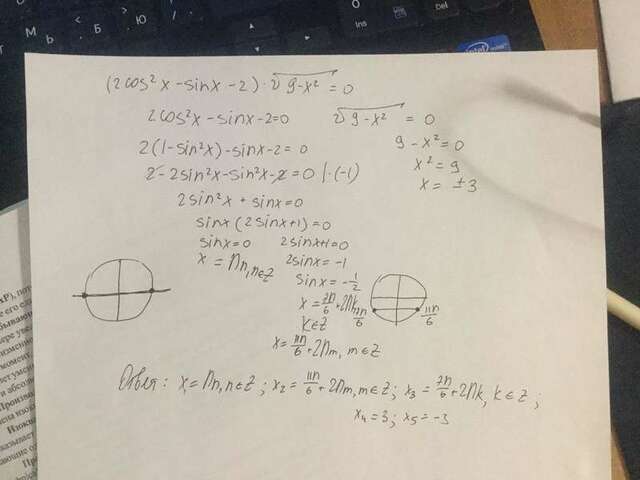 (2cos²x - sinx - 2) · √9-x² = 0
2cos²x - sinx - 2 = 0
√9-x² = 0
2(1 - sin²x) - sinx - 2 = 0
9 - x² = 0
x² = 9
2 - 2sin²x - sin²x - 2 = 0 | · (-1)
x = ±3
2sin²x + sinx = 0
sinx (2sinx + 1) = 0
sinx = 0
2sinx + 1 = 0
x = Πn, n∈Z
2sinx = -1
sinx = -1/2
x = 7Π/6 + 2Πk,
k∈Z
7Π/6
11Π/6
x = 11Π/6 + 2Πm, m∈Z
Ответ: x₁ = Πn, n∈Z; x₂ = 11Π/6 + 2Πm, m∈Z; x₃ = 7Π/6 + 2Πk, k∈Z;
x₄ = 3; x₅ = -3
Ins
Del
intel
М
Б
Ь